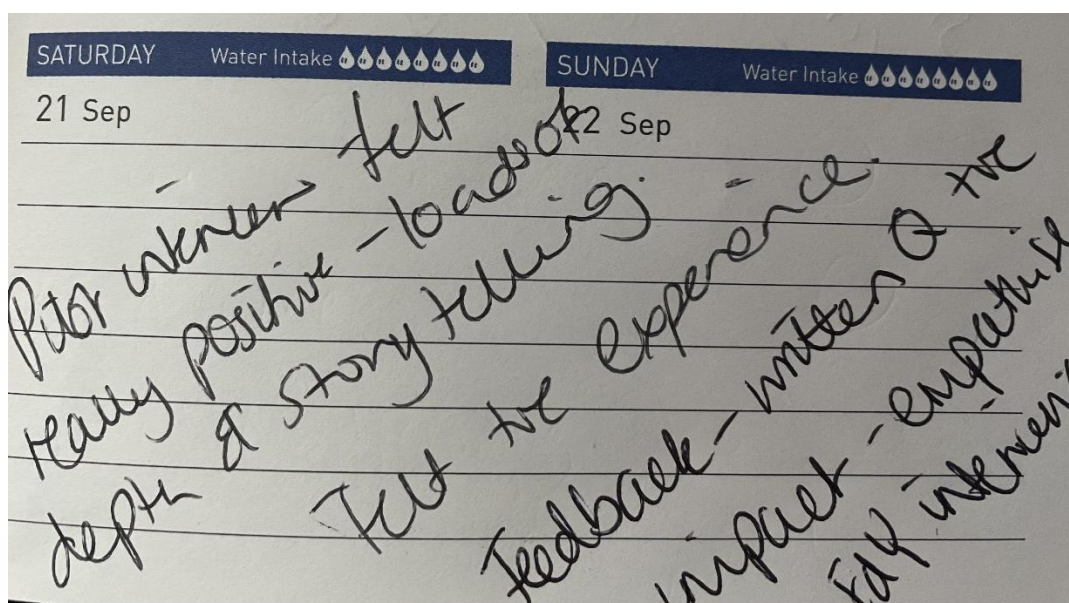 SATURDAY Water Intake
SUNDAY Water Intake
21 Sep
22 Sep
felt
really positive - loads of
depth & story telling.
Felt +ve experience.
Feedback - written Q +ve
impact - empathise